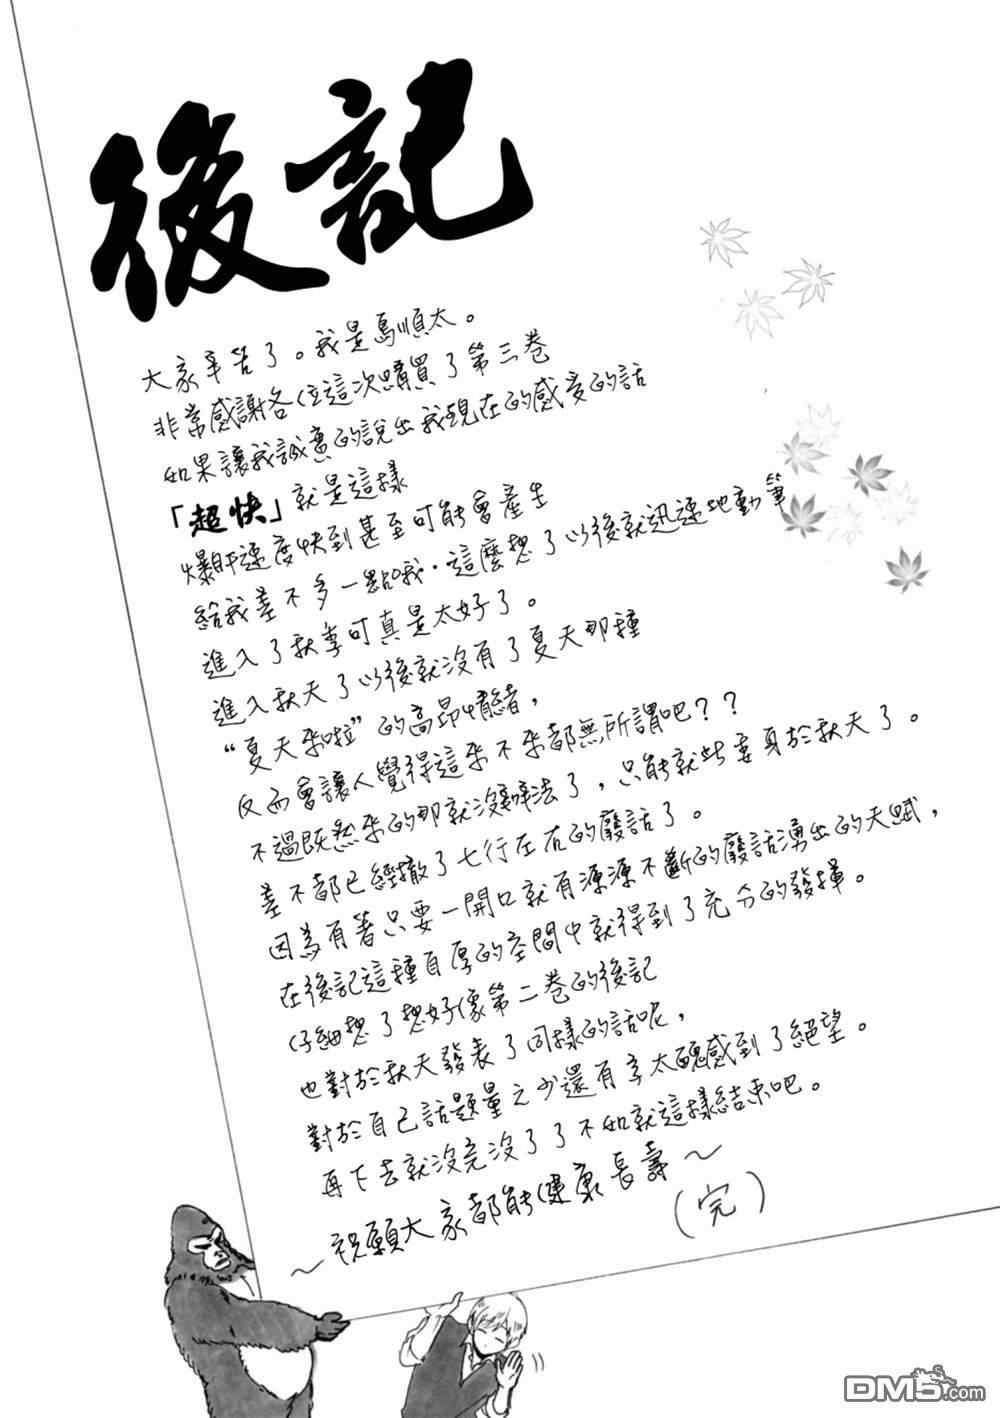 後記
大家辛苦了。我是馬順太。
非常感謝各位這次購買了第三卷
如果讓我誠實的說出我現在的感受的話
「超快」就是這樣
爆肝速度快到甚至可能會產生
給我差不多一點哦·這麼想了以後就迅速地動筆
進入了秋季可真是太好了。
進入秋天了以後就沒有了夏天那種
“夏天來啦”的高昂情緒，
反而會讓人覺得這來不來都無所謂吧？？
不過既然來的那就沒辦法了，只能就此委身於秋天了。
差不都已經撤了七行左右的廢話了。
因為有著只要一開口就有源源不斷的廢話湧出的天賦，
在後記這種自厚的空間中就得到了充分的發揮。
仔細想了想好像第二卷的後記
也對於秋天發表了同樣的話呢，
對於自己話題量之少還有字太醜感到了絕望。
再下去就沒完沒了了不如就這樣結束吧。
～祝願大家都能健康長壽～
（完）
DM5.com